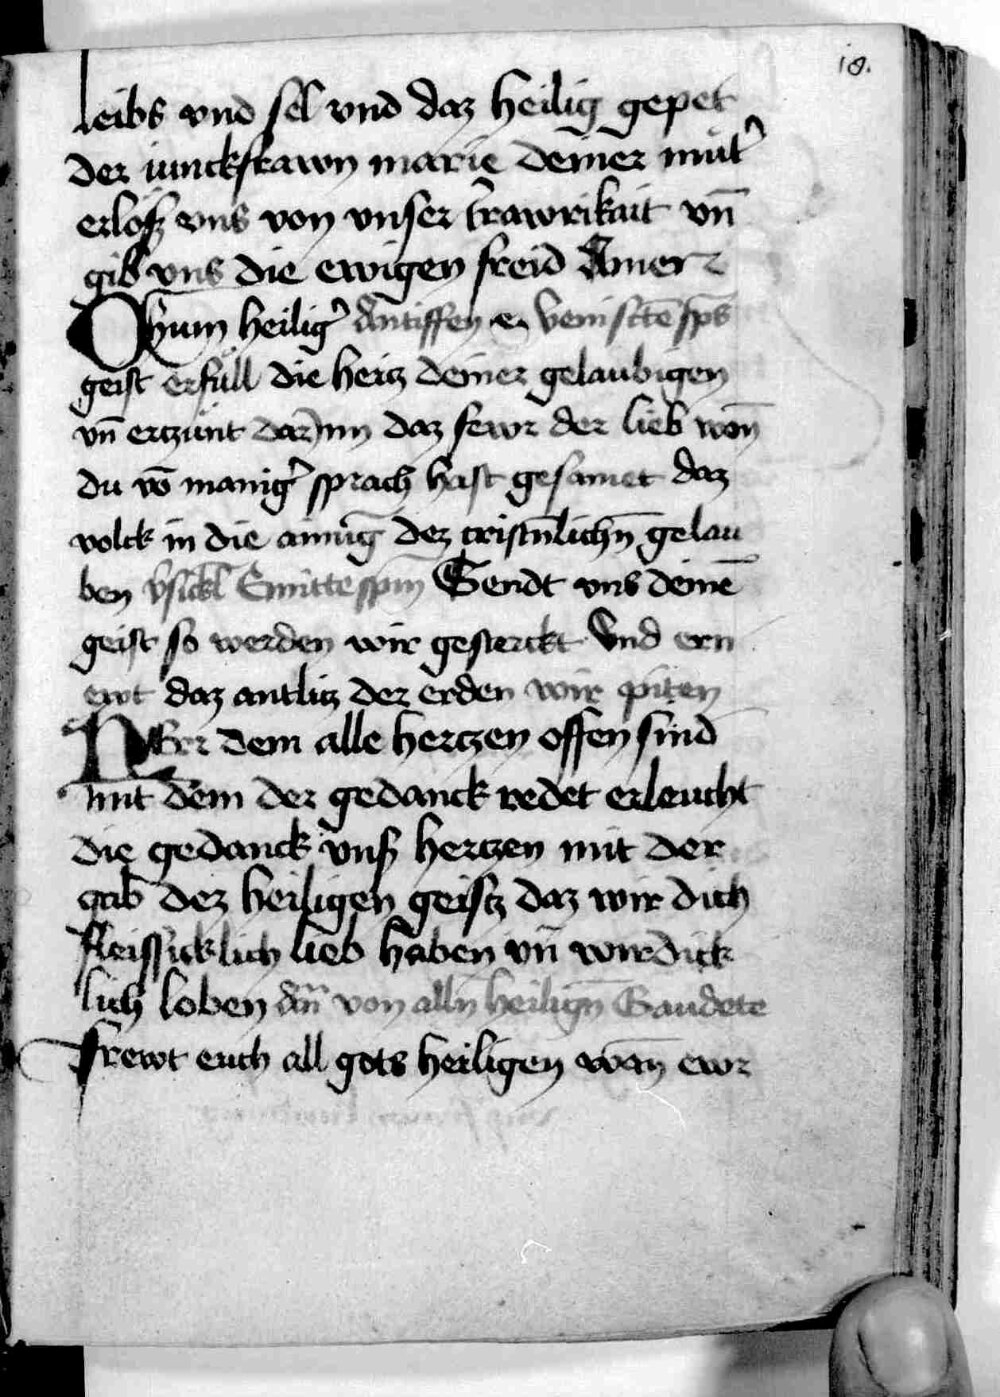 18.
leibs vnd sel vnd daz heilig gepet
der iunckfrawn marie deiner mut᾽
erlos vns von vnser trawrikait vn̄
gib vns die ewigen freid Amen
Chum heilig᾽ Antiffen Veni sc̄te sp̄s
geist erfull die hertz deiner gelaubigen
vn̄ erczunt dar Inn daz fewr der lieb wan̄
du vō manig᾽ sprach hast gesamet daz
volck in die ainuḡ dez cristn̄lichn̄ gelau
ben v᾽sickl Emitte sp̄m Sendt vns deinē
geist so werden wir gesterckt Vnd ern
ewt daz antlitz der erden wir piten
HErr dem alle hertzen offen sind
mit dem der gedanck redet erleucht
die gedanck vnß hertzen mit der
gab dez heiligen geistz daz wir dich
fleissicklich lieb haben vn̄ wirdick
lich loben von alln heilign̄ Gaudete
frewt euch all gots heiligen wan̄ ewr